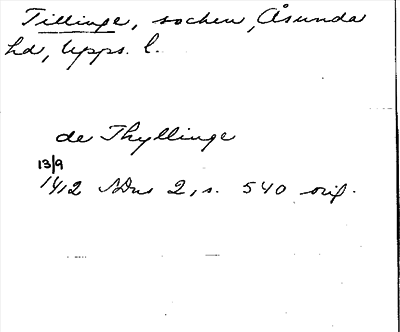 Tillinge, socken, Åsunda
hd, Upps. l.
de Thyllinge
13/9
1412 SDns 2, s. 540 orig.